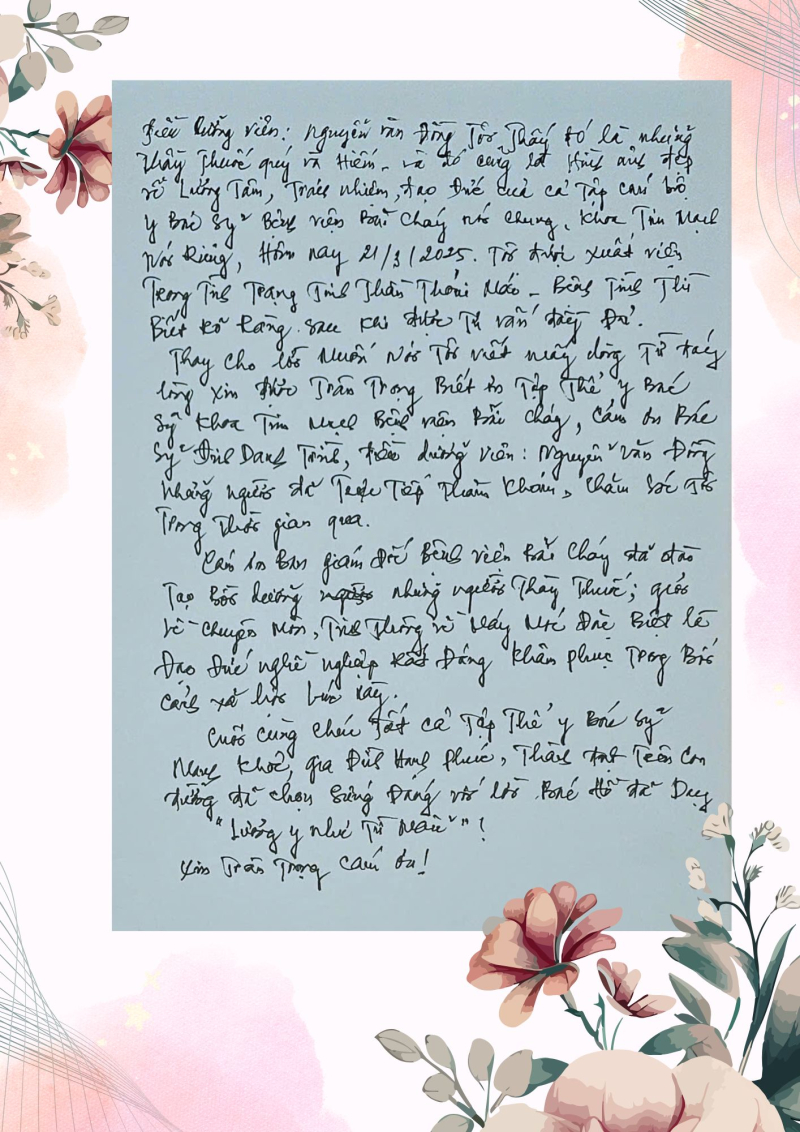 điều dưỡng viên: Nguyễn văn Đồng Tôi Thấy đó là những
Thầy Thuốc quý và Hiếm. và đó cũng là Hình ảnh đẹp
về Lương Tâm, Trách nhiệm, đạo Đức của cả Tập cán bộ
y Bác Sỹ Bệnh viện Bãi Cháy nói chung, Khoa Tim Mạch
Nói Riêng, Hôm nay 21/3/2025. Tôi được xuất viện
Trong Tình Trạng Tinh Thần Thoải Mái - Bệnh Tình Thì
Biết Rõ Ràng sau khi được Tư vấn đầy Đủ.
Thay cho lời Muốn Nói Tôi viết mấy dòng Từ đáy
lòng xin được Trân Trọng Biết ơn Tập Thể y Bác
Sỹ Khoa Tim Mạch Bệnh viện Bãi Cháy, Cảm ơn Bác
Sỹ Đinh Danh Trình, điều dưỡng viên: Nguyễn Văn Đồng
Những người đã Trực Tiếp Thăm Khám, Chăm Sóc Tôi
Trong Thời gian qua.
Cảm ơn Ban giám đốc Bệnh viện Bãi Cháy đã đào
Tạo Bồi dưỡng những người Thầy Thuốc; giỏi
về chuyên Môn, Tinh Thông về Máy Móc Đặc Biệt là
Đạo Đức nghề nghiệp Rất Đáng Khâm phục Trong Bối
cảnh xã hội lúc này.
Cuối cùng chúc Tất cả Tập Thể y Bác Sỹ
Mạnh Khỏe, gia Đình Hạnh Phúc, Thành đạt Trên Con
đường đã chọn Xứng Đáng với lời Bác Hồ đã Dạy
"Lương y như Từ Mẫu"!
Xin Trân Trọng cảm ơn!